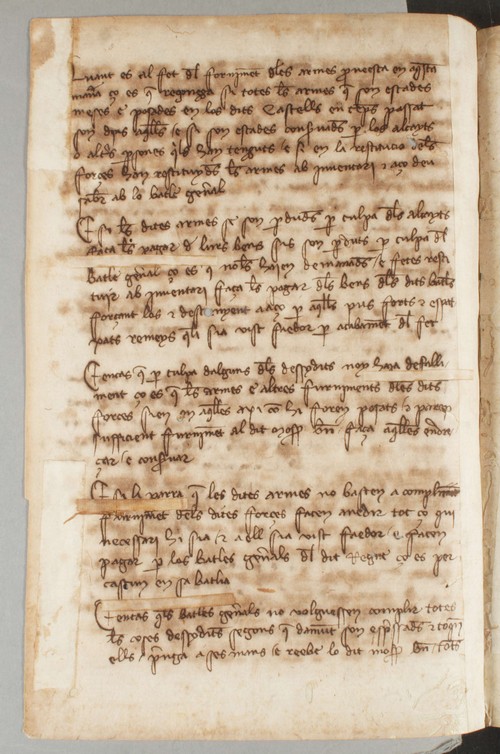 Quant es al fet dl forniment dles armes prouesta en aqsta
mana ço es q regonega si totes les armes q son estades
meses e posades en los dits Castells en temps passat
son dins aqlls e si son estades conseruads p los alcayts
o altres psones qls han tenguts e si en la restitucio dels
forçes han restituyds les armes ab inuentari e aço deu
saber ab lo batle general
E si les dites armes se son pdudes p culpa dls alcayts
faça les pagar d lurs bens si son pdudes p culpa dl
Batle general ço es q nols haien demanads e fetes resti
tuir ab inuentari faça les pagar dls bens dls dits batles
forçant los a aço p aqlls pus forts e espat
xats remeys qli sia vist faedor p acabament dl fet
Encas q p culpa dalguns dls desusdits noy haia defalli
ment ço es q les armes e altres furniments dles dits
forces sien en aqlles axi co hi foren posats
sufficient furniment al dit faça aqlles endre
çar e conseruar
E si li parra q les dites armes no basten a compliment
forniment dels dites forçes facen anedir tot ço qui
necessari hi sia e a ell sia vist faedor e facen
pagar p los batles generals dl dit Regne ço es per
cascun en sa batlia
Encas qls batles generals no volguessen complir totes
les coses desusdits segons q damunt son espressads
ells prenga a ses mans e reebe lo dit tots